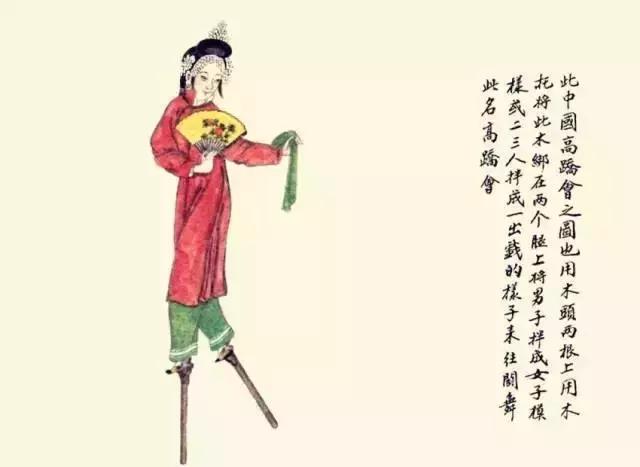 此中國高蹻會之圖也用木頭兩根上用木
托將此木綁在两个腿上将男子拌成女子模
樣或二三人拌成一出戲的樣子来往鬭舞
此名高蹻會